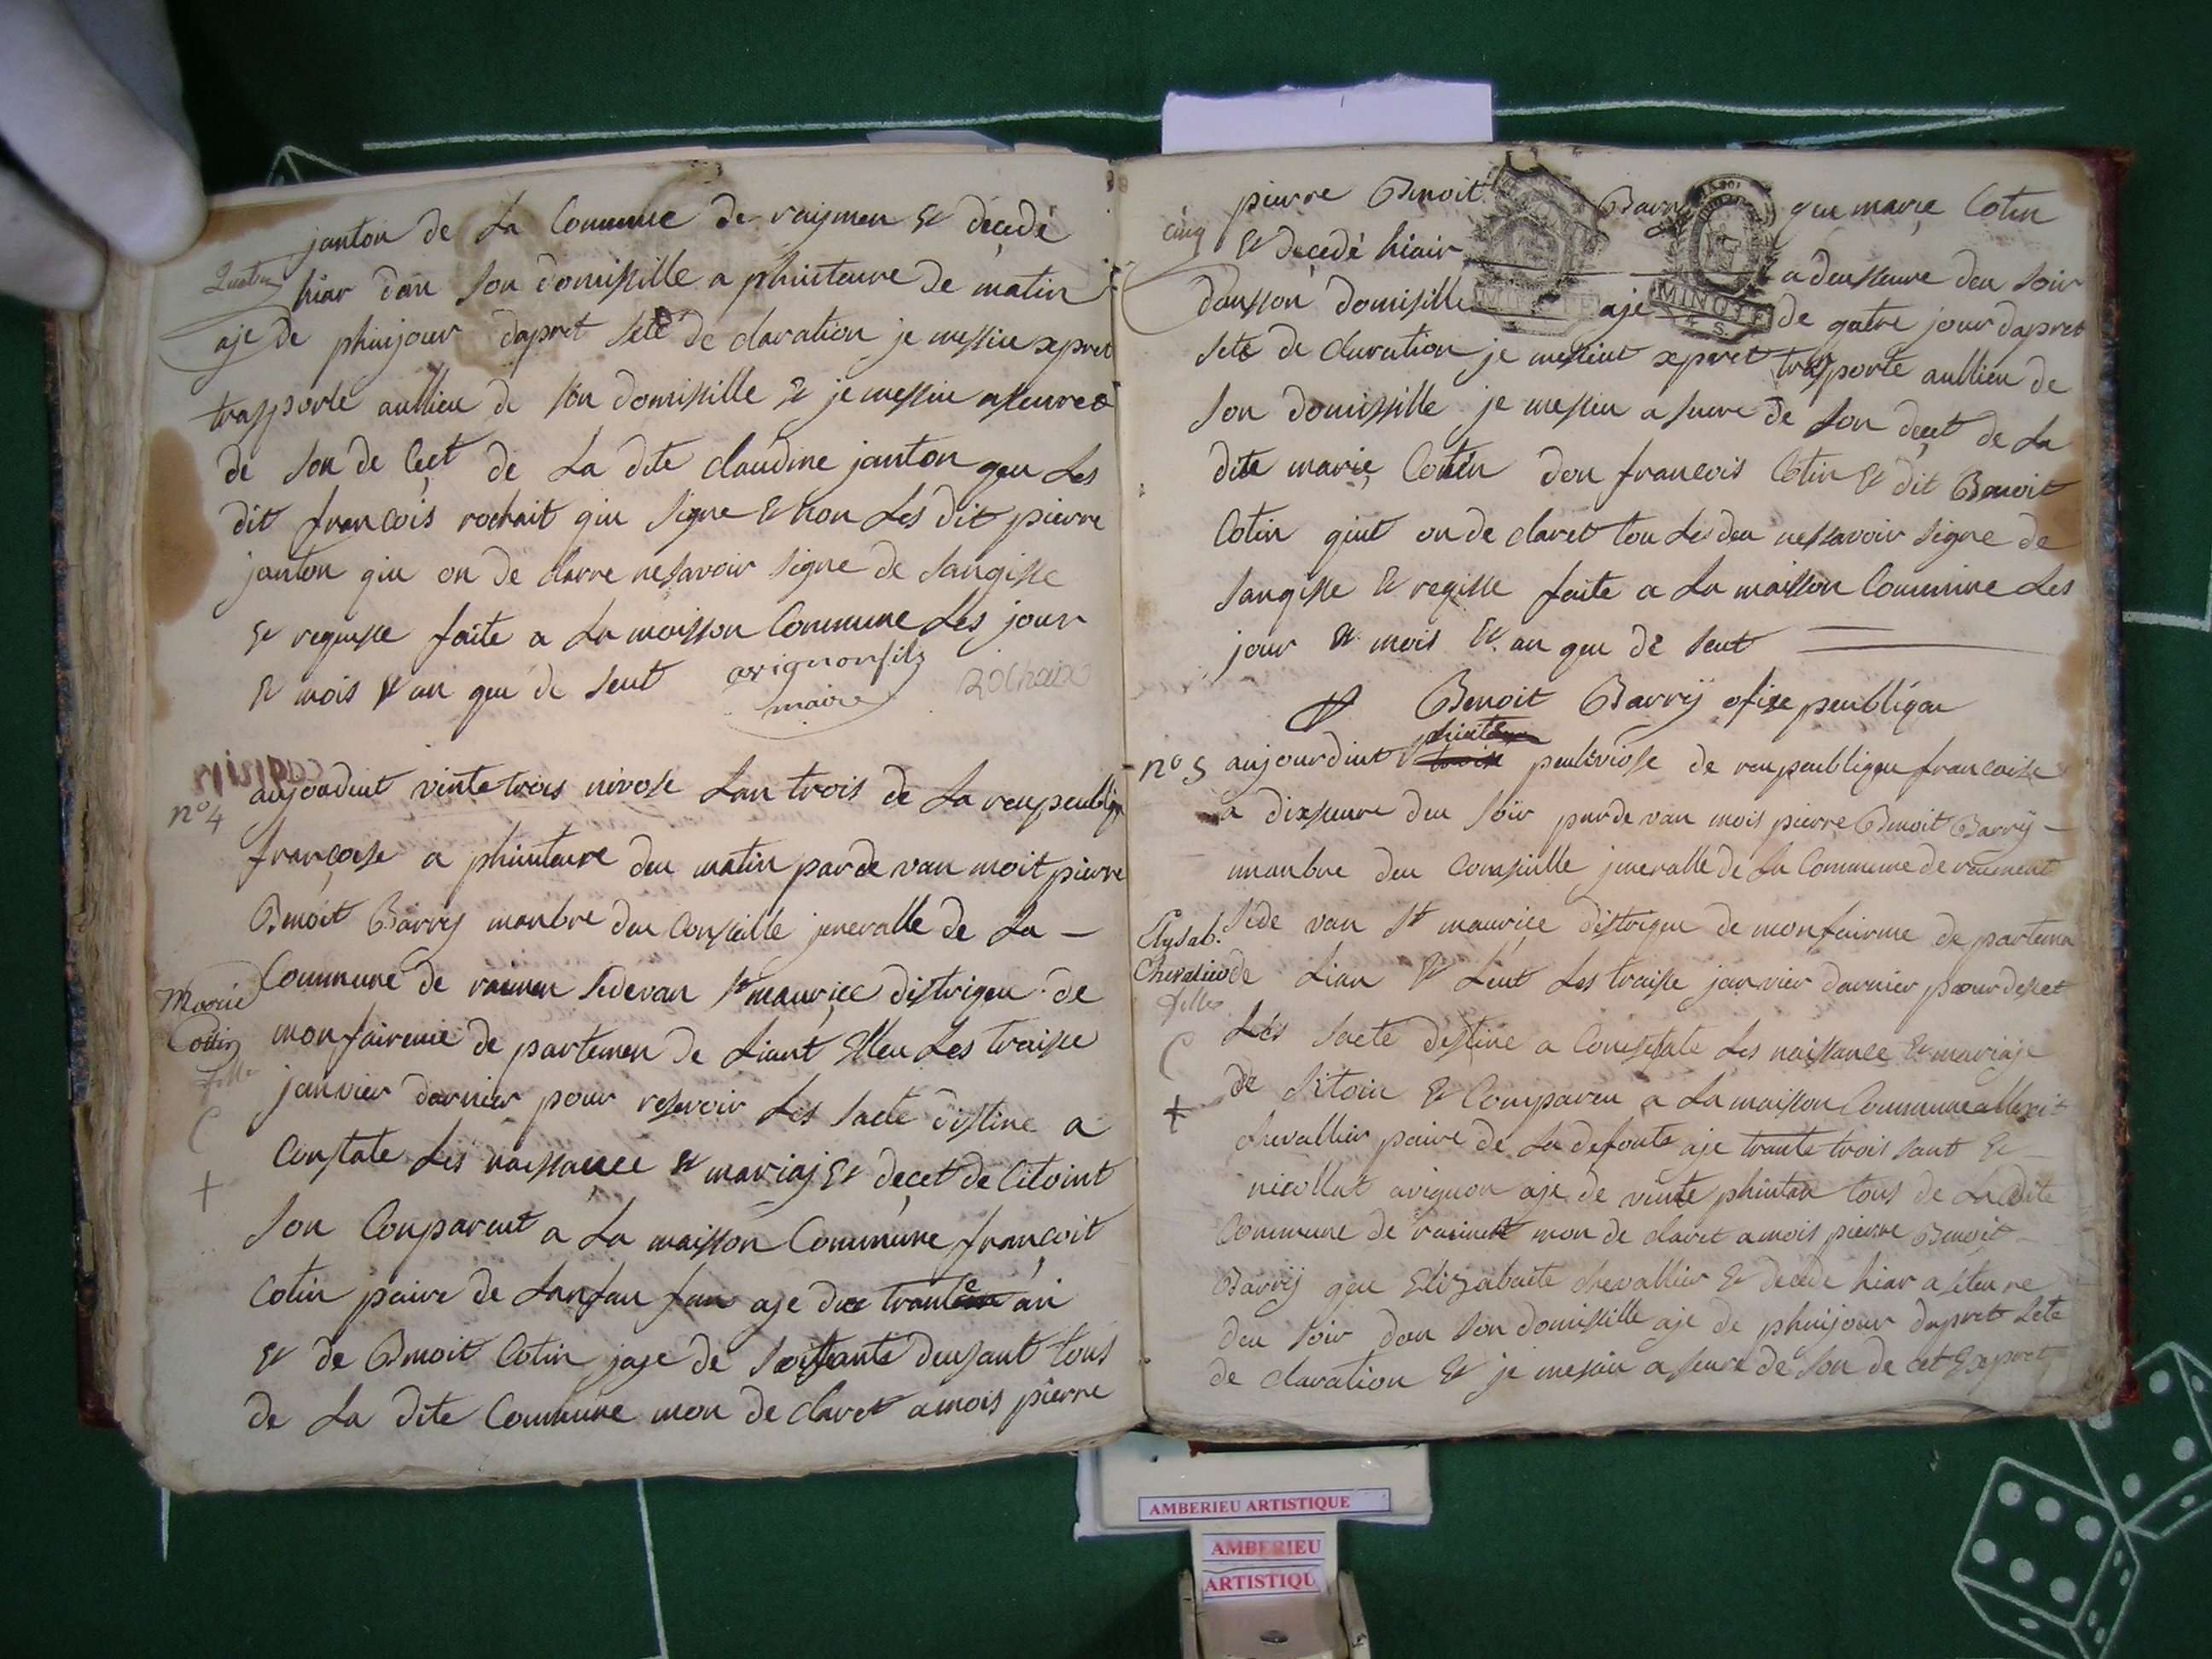 janton de La Commune de raymen & décedé
hiar dan son domisille a phuiteure de matin
aje de phuijour dapret sete de claration je messiu xpret
trasporte aullieu de son domisille & je messiu aseurée
de son de Cect de La dite claudine janton qeu Les
dit francois rochait qiu signe & non Les dit pierre
janton qiu on de clarre nesavoir signe de sangisse
& requisse faite a La moisson Commune Les jour
& mois & an qeu de seut
avignon fils
maire
Rochaix
n° 4
aujoudeut vinte trois nivose Lan trois de La reupeubliqe
francoise a phuiteure deu matin parde van moit pierre
Benoit Barry manbre deu Conseille jeneralle de La -
Commune de raemen sidevan st maurice distriqeu de
Marie
Cottin
fille
+
monfairme de partemen de Liant Elleu Les traisse
janvier darnier pour resevoir Les sacte distine a
Constate Les naissance & mariaj & decet de Citoint
son Conparent a La maisson Commune francoit
Cotin paire de Lanfan aje de trante an
& de Benoit Cotin jaje de soissante deusant tous
de La dite Commune mon de claret amois pierre
cinq
pierre Benoit Barry qeu marie Cotin
& decedé hiair a deusseure deu soir
dansson domisille aje de qatre jour dapret
MINUTE
sete de claration je messiut xpret trasporte aullieu de
son domissille je messiu a seure de son decet de La
dite marie Cotin don francois Cotin & dit Benoit
Cotin qiut on de claret tou Les deu nessavoir signe de
sangisse & regisse faite a La maisson Commune Les
jour & mois & an qeu de seut
Benoit Barrÿ ofise peubliqeu
n° 5 aujourdeut peulsviosse de reupeubliqeu francoise
a dixseure deu soir parde van mois pierre Benoit Barrÿ -
manbre deu Conseille jeneralle de La Commune de raiment
side van st maurice distriqeu de monfairme de partemen
Elysab.
Chevalier
fille
+
de Lian & Leut Les traisse janvier darnier pour
Les sacte distine a Constate Les naissance & mariaje
de sitoin & Compareu a La maisson Commune
chevallier paire de La defonte aje trante trois sant &
nicollat avignon aje de vinte phuitan tous de La dite
Commune de raiment mon de claret amois pierre Benoit
Barrÿ qeu Elizabaite chevallier & decede hiar a seteure
deu soir dan son domisille aje de phuijour dapret sete
de claration & je mesiu a seure de son de cet & xpret
AMBERIEU ARTISTIQUE
AMBERIEU
ARTISTIQU